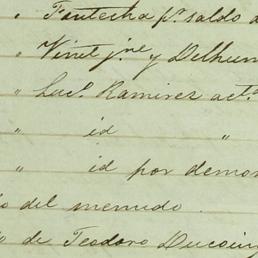 " Fontecha pr. saldo d
" Vinet jne. y Delhum
" Luc. Ramirez acta.
" id "
" id por demor
o del menudo.
o de Teodoro Ducoing